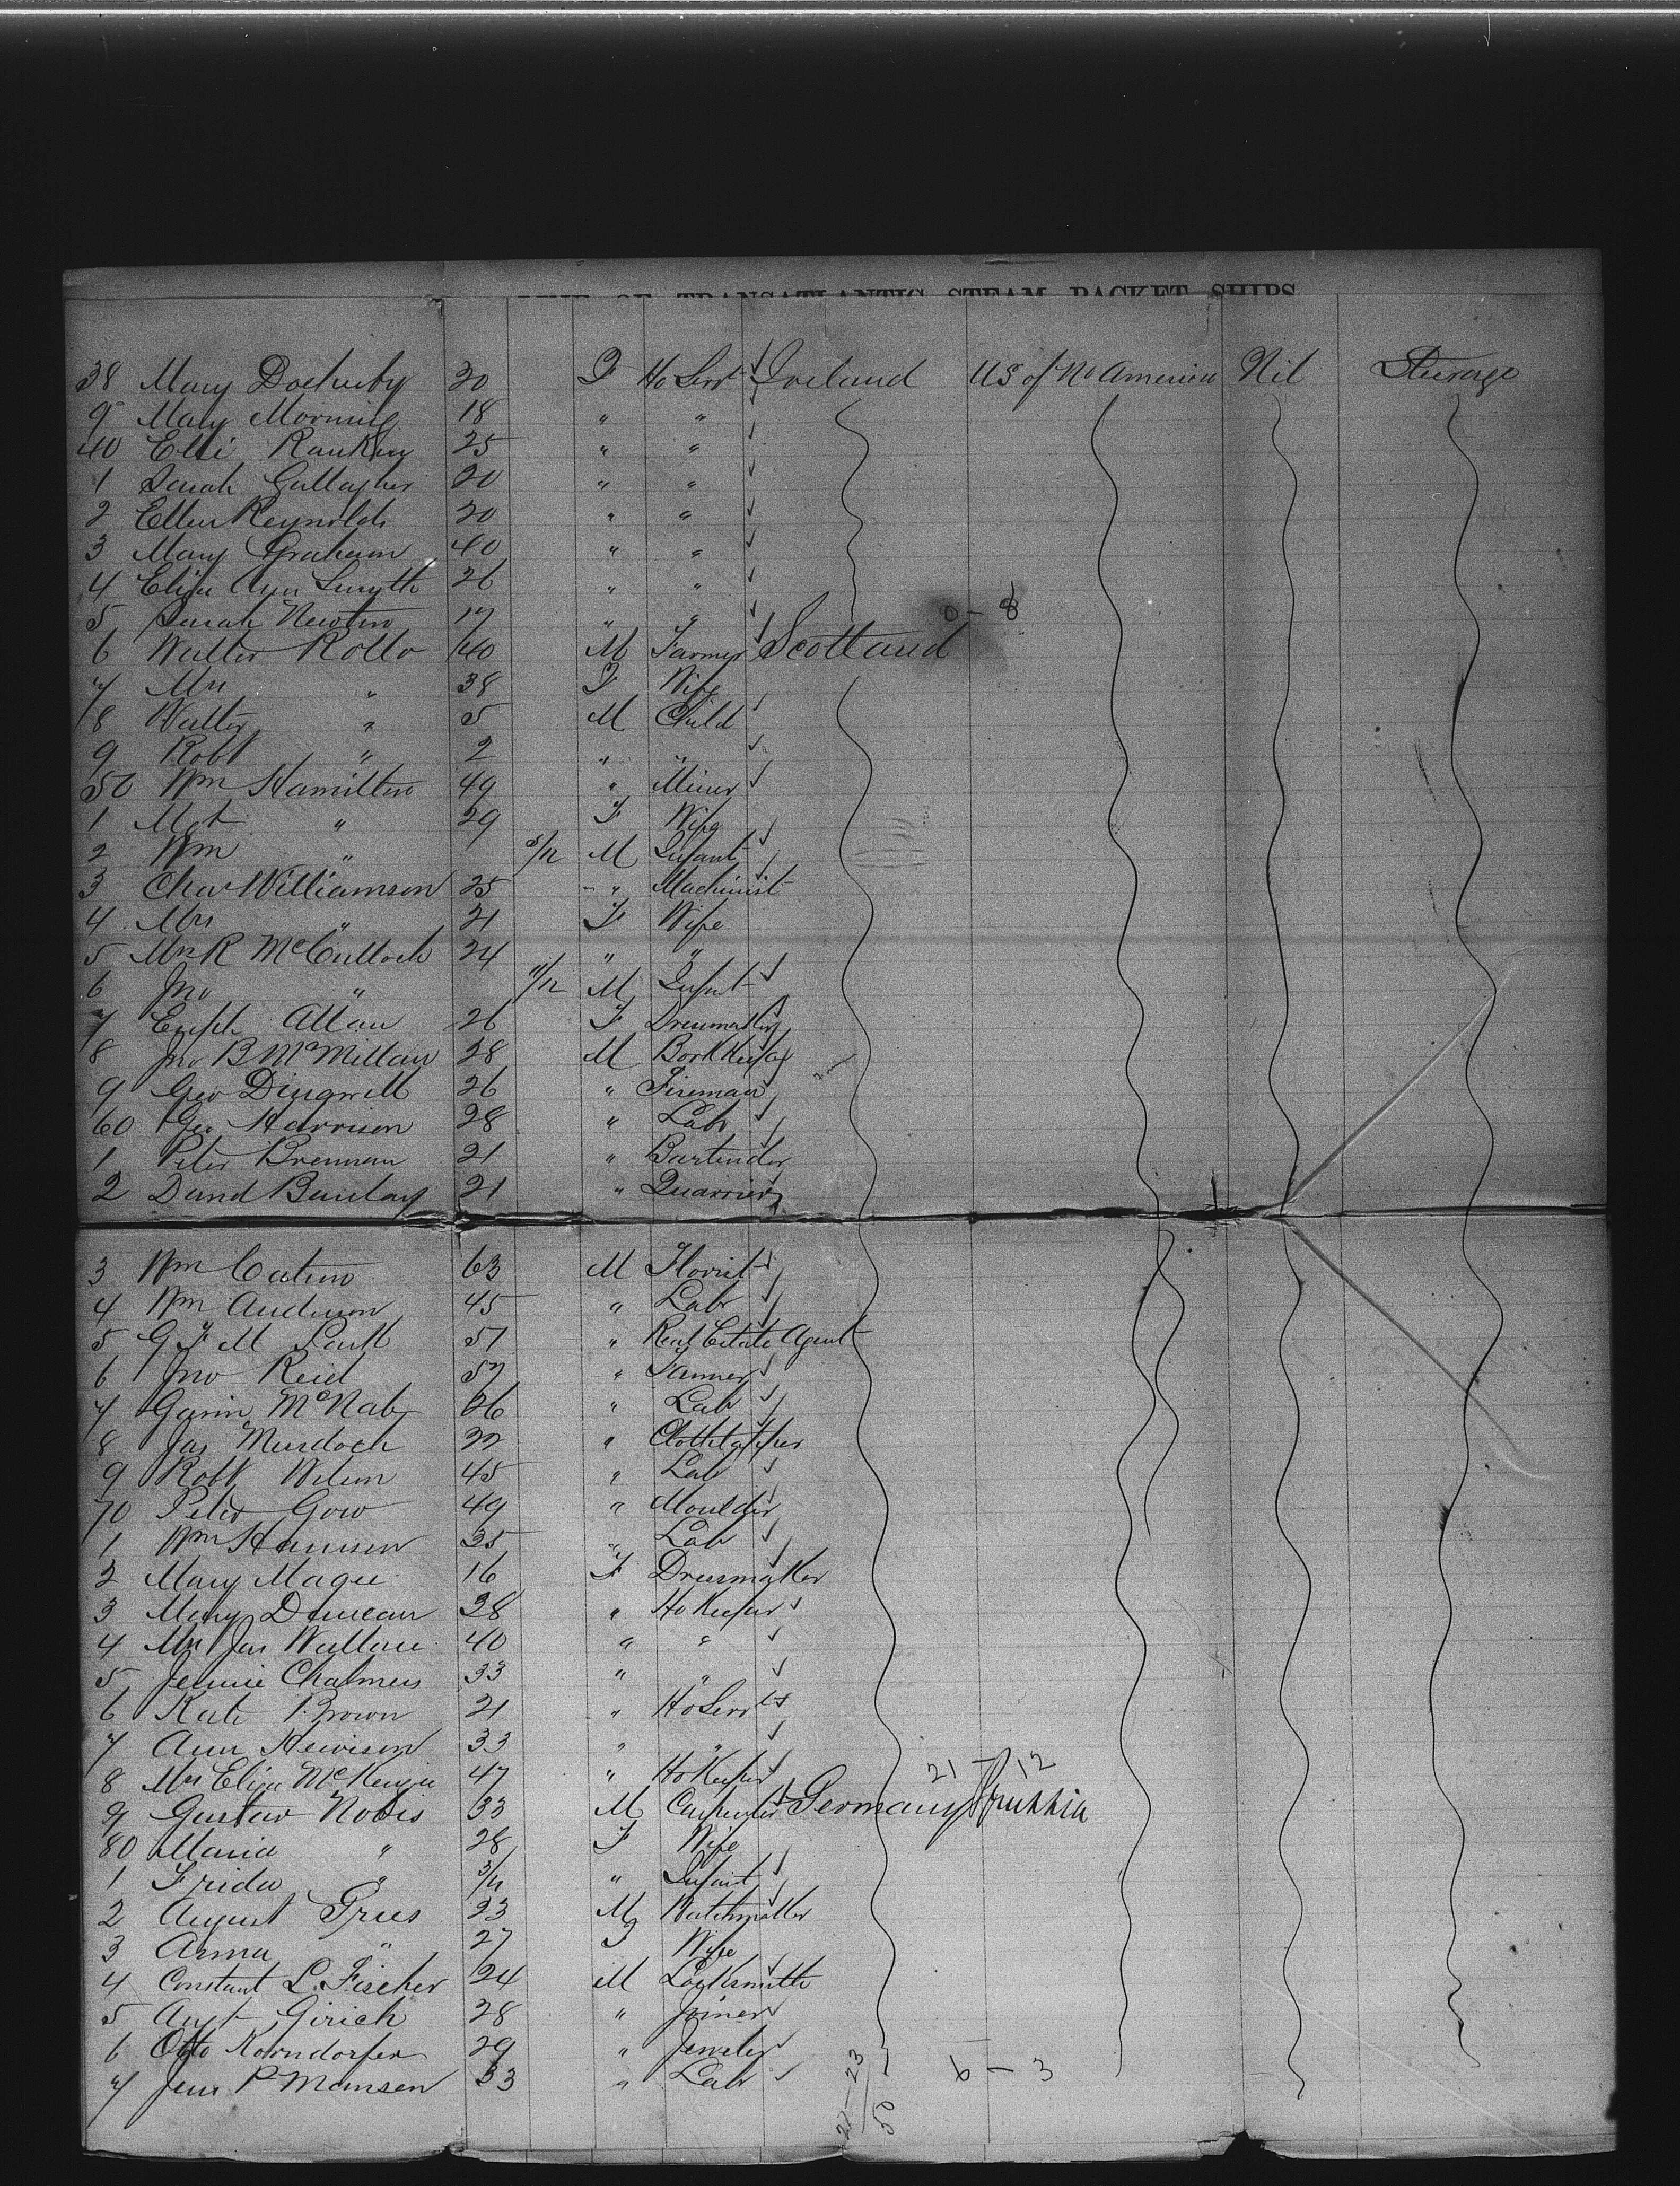 LINE OF TRANSATLANTIC STEAM PACKET SHIPS
38 Mary Docherty 20 F Ho Servt Ireland US of No America Nil Steerage
9 Mary Morning 18 " "
40 Elli Rankin 25 " "
1 Sarah Gallagher 20 " "
2 Ellen Reynolds 20 " "
3 Mary Graham 40 " "
4 Eliza Ann Smyth 26 " "
5 Sarah Newton 17 " " 0 - 8
6 Walter Rollo 40 M Farmer Scotland
7 Mrs " 38 F Wife
8 Walter " 5 M Child
9 Robt " 2 " "
50 Wm Hamilton 49 " Miner
1 Mgt " 29 F Wife
2 Wm " 5/12 M Infant
3 Chas Williamson 25 " Machinist
4 Mrs " 21 F Wife
5 Mrs R McCulloch 24 " "
6 Jno " 11/12 M Infant
7 Euph Allan 26 F Dressmaker
8 Jno B McMillan 28 M Bookkeeper
9 Geo Dingwell 26 " Fireman
60 Geo Harrison 28 " Labr
1 Peter Brennan 21 " Bartender
2 David Barclay 21 " Quarrier
3 Wm 63 M Florist
4 Wm Anderson 45 " Labr
5 G F M 51 " Real Estate Agent
6 Jno Reid 57 "
7 Gavin McNab 26 " Labr
8 Jas Murdoch 22 "
9 Robt Wilson 45 " Labr
70 Peter Gow 49 " Moulder
1 Wm 35 " Labr
2 Mary Magee 16 F Dressmaker
3 Mary Duncan 38 " Ho Keeper
4 Mrs Jas Wallace 40 " "
5 Jennie Chalmers 33 " "
6 Kate Brown 21 " Ho Servt
7 Ann Hewison 33 " "
8 Mrs Eliza McKenzie 47 " Ho Keeper 21 - 12
9 Gustav Nobis 33 M Carpenter Germany Prussia
80 Maria " 28 F Wife
1 Frida " " Infant
2 August Grees 23 M Watchmaker
3 Anna " 27 F Wife
4 Constant L. Fischer 24 M Locksmith
5 Augt Girich 28 " Joiner
6 Otto Korndorfer 29 " Jeweler
7 Jens P Mansen 33 " Labr 6 - 3
27 - 23
50